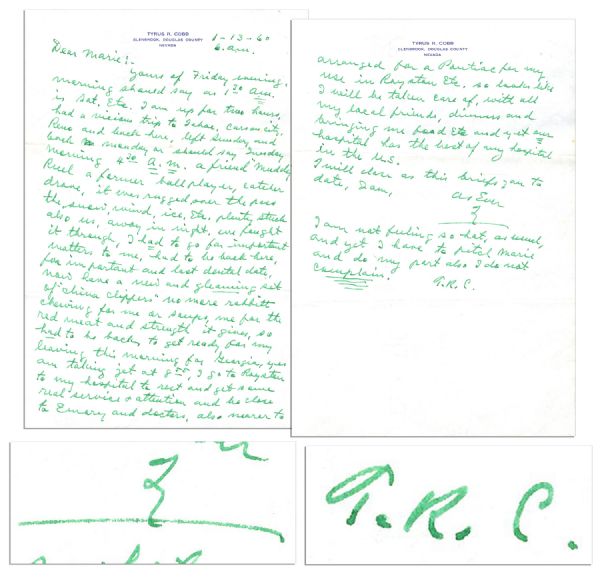 TYRUS R. COBB
GLENBROOK, DOUGLAS COUNTY
NEVADA
1-13-60
6 a.m.
Dear Marie!-
Yours of Friday evening,
morning should say as 1 30 a.m.
is Sat, Etc. I am up for two hours,
had a vicious trip to Tahoe, Carson city,
Reno and back here, left Sunday and
back monday or should say Tuesday
morning 4 30 A.M. a friend Muddy
Ruel a former ball player, catcher
drove, it was rugged over the pass
the snow, wind, ice, Etc plenty stuck
also us, away in night, we fought
it through, I had to go for important
matters to me, had to be back here,
for important and last dental date,
now have a new and gleaming set
of "china clippers" no more rabbit
chewing for me or soups, me for the
red meat and strength it gives, so
had to be back, to get ready for my
leaving this morning for Georgia, yes
am taking jet at 8 I go to Royston
to my hospital to rest and get some
real service & attention and be close
to Emory and doctors, also nearer to
TYRUS R. COBB
GLENBROOK, DOUGLAS COUNTY
NEVADA
arranged for a Pontiac for my
use in Royston Etc, so looks like
I will be taken care of, with all
my local friends, divines and
bringing me food Etc and yet our
hospital has the best of any hospital
in the U.S.
I will close as this briefs you to
date, I am,
As Ever
I am not feeling so hot, as usual,
and yet I have to Marie
and do my part also I do not
complain.
T.R.C.
T.R.C.